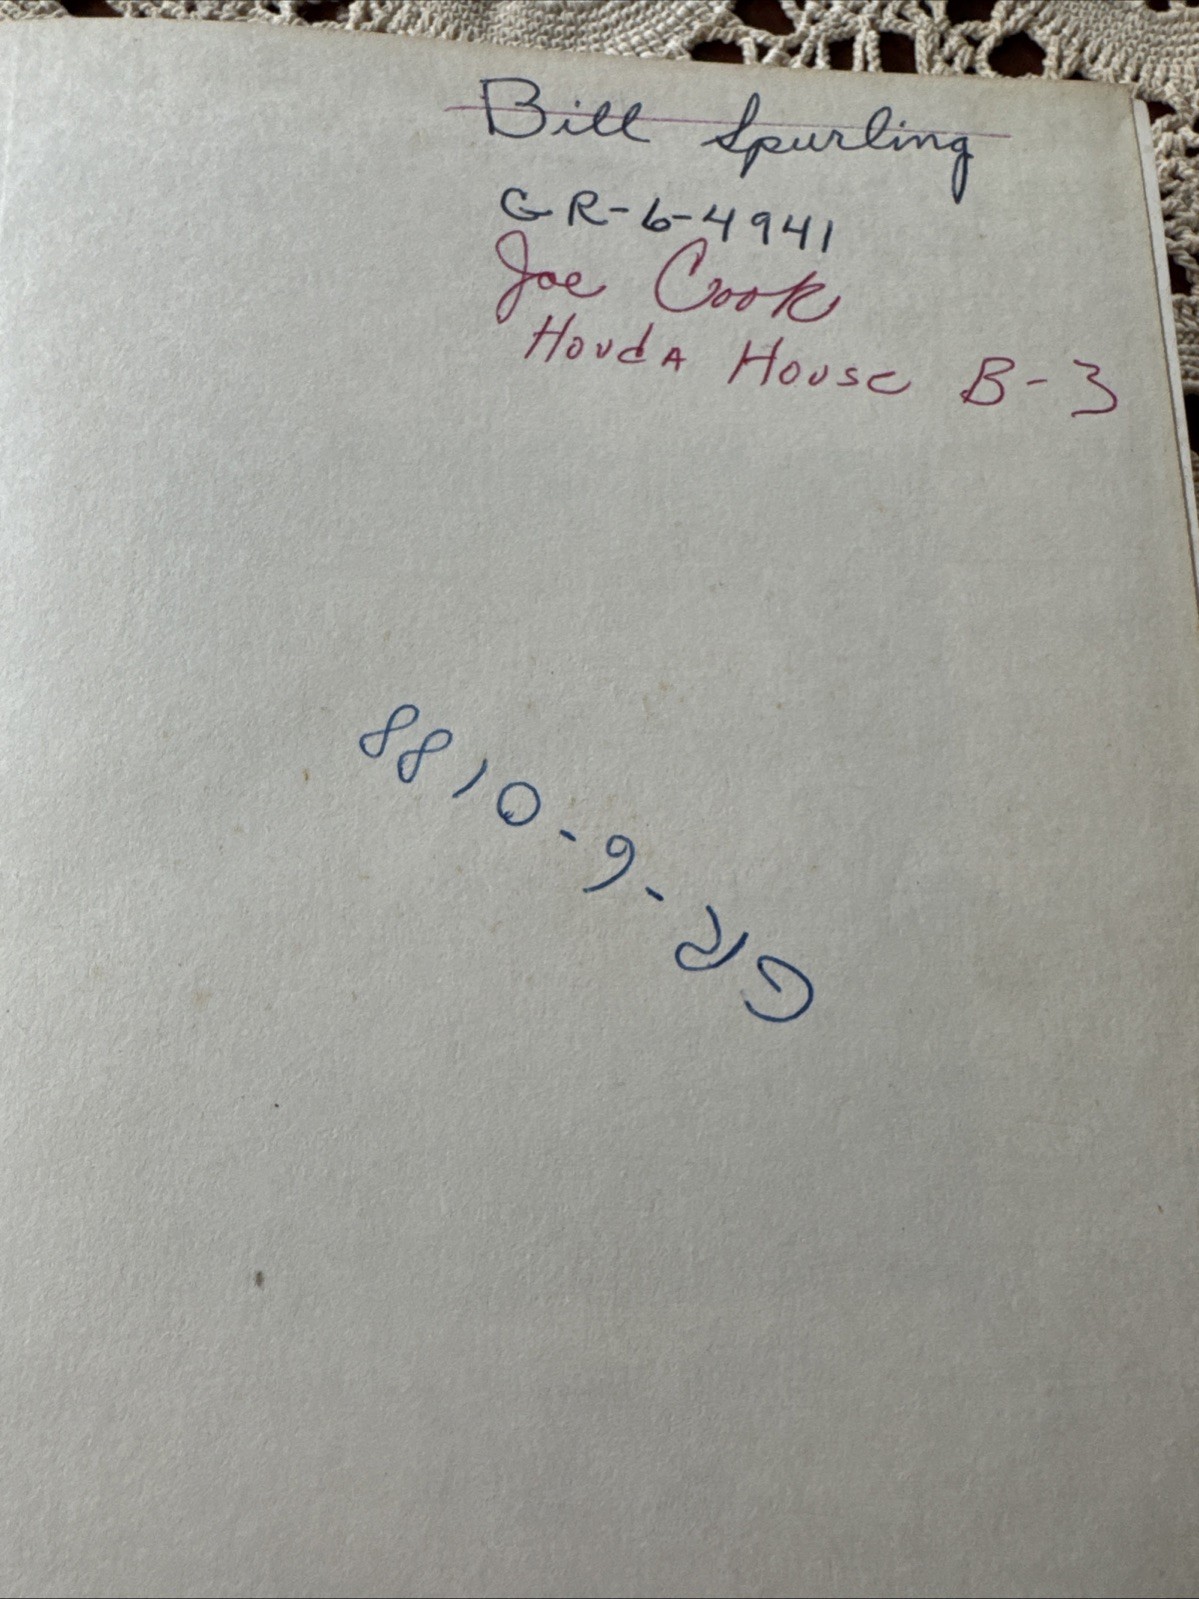 Bill Spurling
GR-6-4941
Joe Cook
HoudA House B-3
GR-6-0188